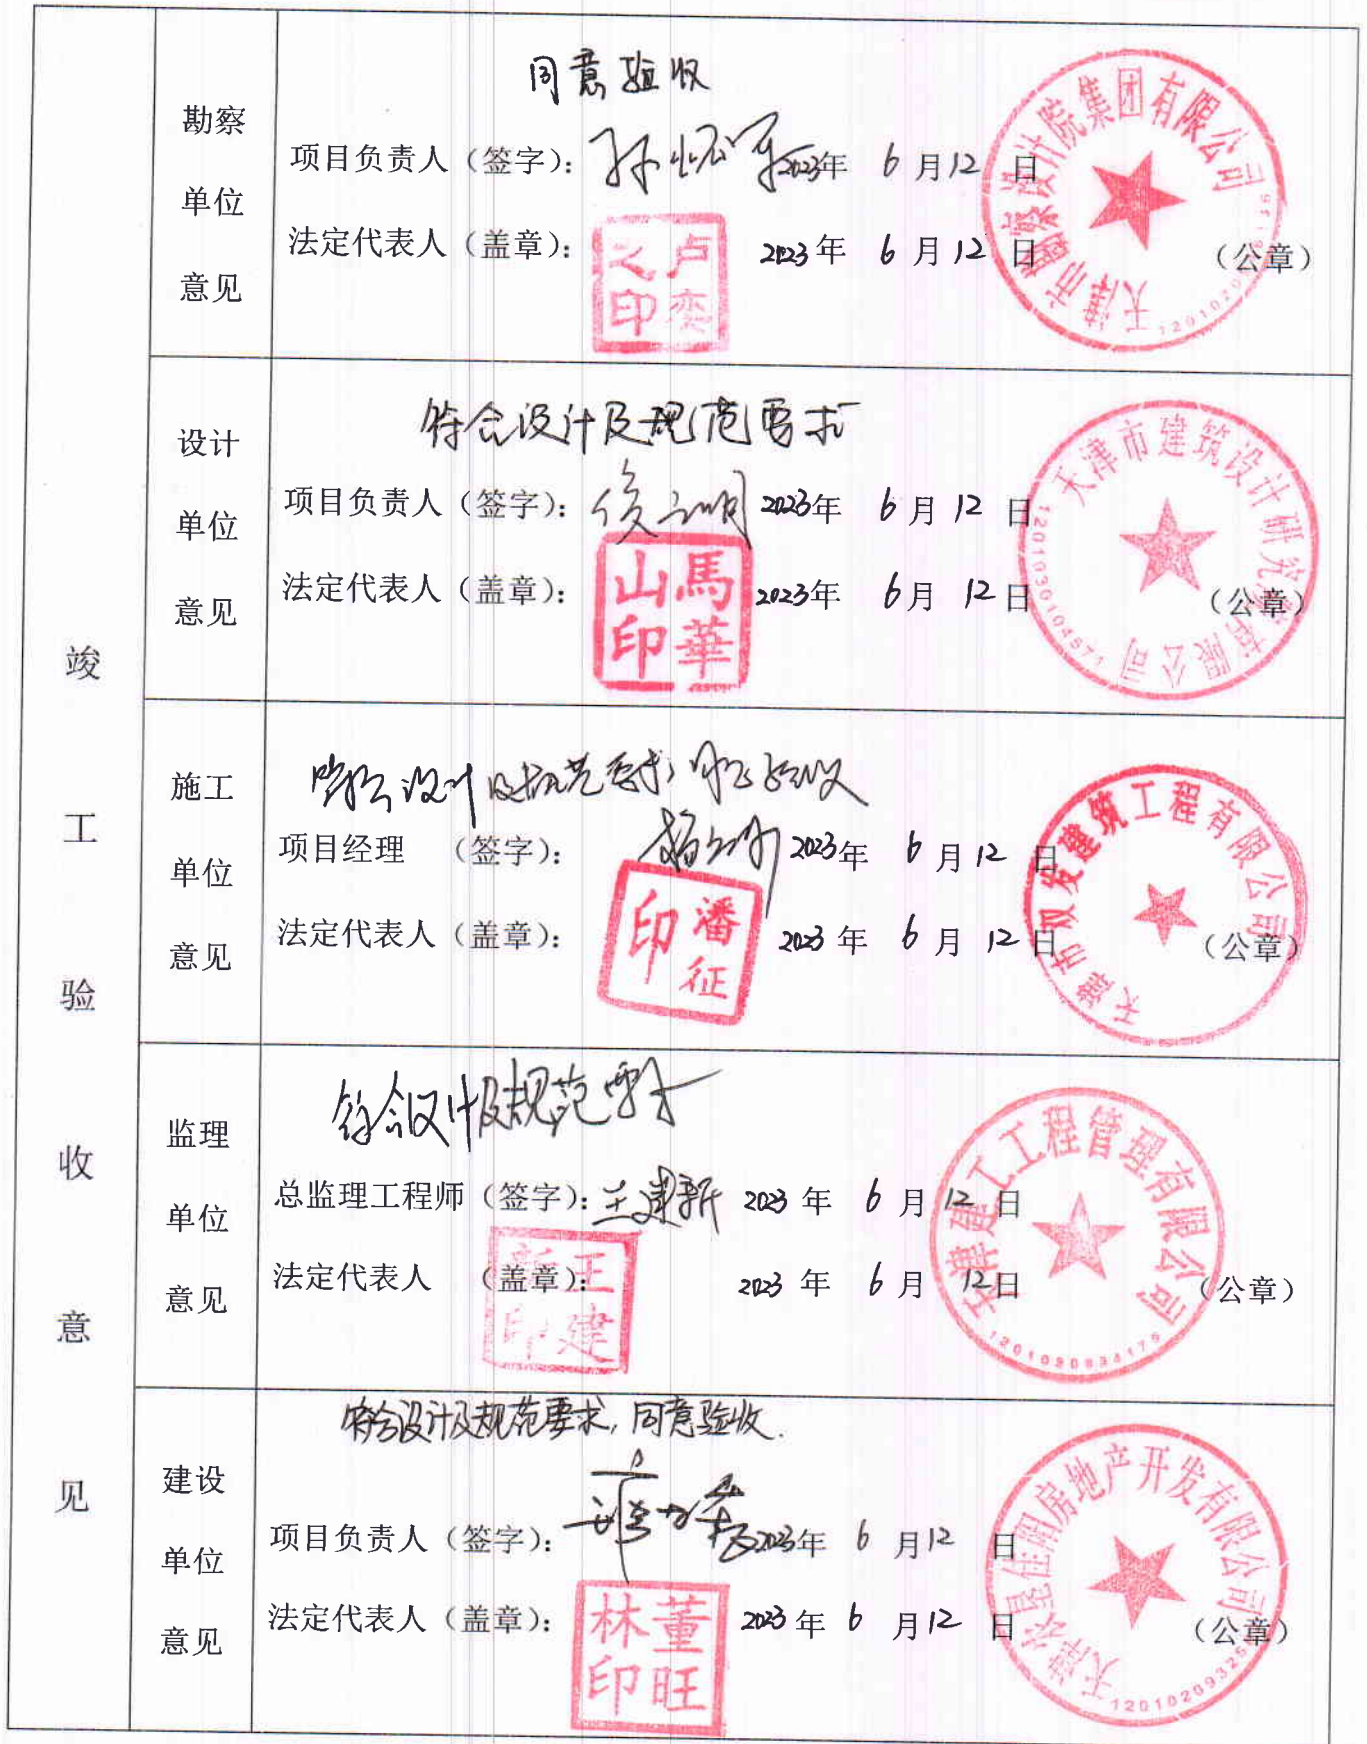 竣工验收意见
勘察单位意见
同意验收
项目负责人（签字）： 2023年 6月12日
法定代表人（盖章）： 2023年 6月12日
卢奕之印
（公章）
天津市勘察设计院集团有限公司
设计单位意见
符合设计及规范要求
项目负责人（签字）： 2023年 6月12日
法定代表人（盖章）： 2023年 6月12日
馬華山印
（公章）
天津市建筑设计研究院有限公司
1201030104571
施工单位意见
符合设计及规范要求，
项目经理 （签字）： 2023年 6月12日
法定代表人（盖章）： 2023年 6月12日
潘征印
（公章）
天津市双发建筑工程有限公司
监理单位意见
符合设计及规范要求
总监理工程师（签字）：王建新 2023年 6月12日
法定代表人 （盖章）： 2023年 6月12日
王建新印
（公章）
天津建工工程管理有限公司
建设单位意见
符合设计及规范要求，同意验收.
项目负责人（签字）： 2023年 6月12日
法定代表人（盖章）： 2023年 6月12日
董旺林印
（公章）
房地产开发有限公司